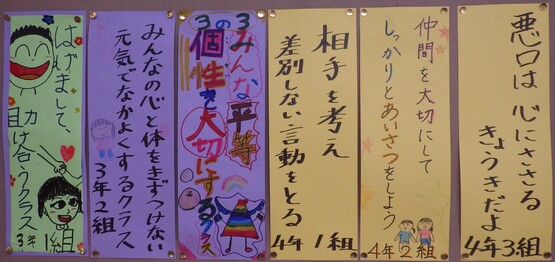 悪口は 心にささる
きょうきだよ
4年3組
仲間を大切にして
しっかりとあいさつをしよう
4年2組
相手を考え
差別しない言動をとる
4年 1組
みんな平等
個性を大切にするクラス
3の3
みんなの心と体をきずつけない
元気でなかよくするクラス
3年2組
はげまして、
助け合うクラス
3年 1組